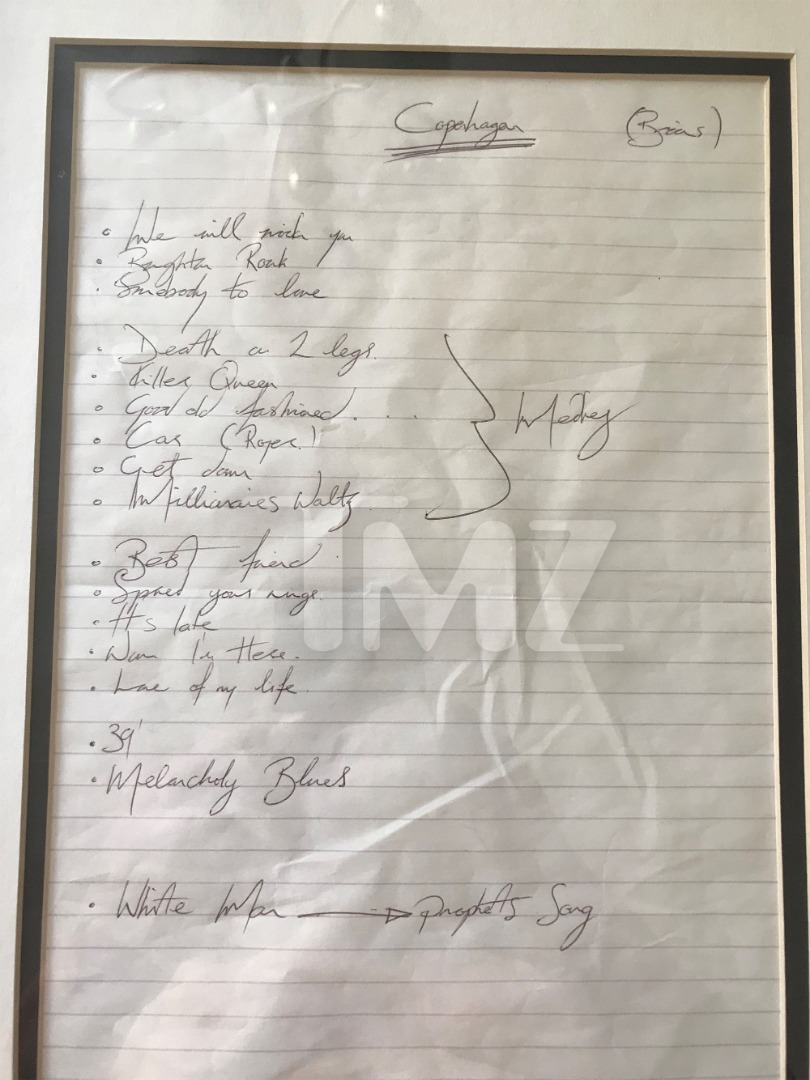 Copenhagen (Brians)
• We will rock you
• Brighton Rock
• Somebody to love
• Death on 2 legs.
• Killer Queen
• Good old fashioned. . . .
• Car (Roger!)
• Get down
• Millionaires Waltz
Medley
• Best friend
• Spread your wings.
• It's late
• Now I'm Here.
• Love of my life.
• 39'
• Melancholy Blues
• White Man → Prophets Song
TMZ